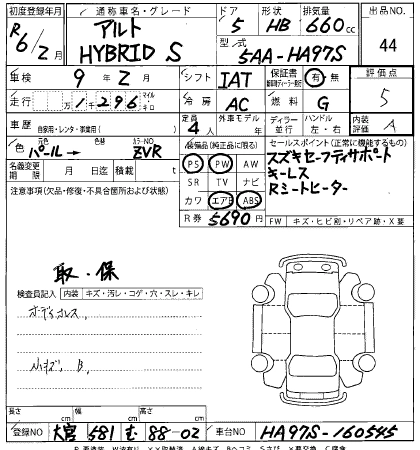 初度登録年月 通称車名・グレード ドア 形状 排気量 出品NO.
R6/2月 アルト HYBRID S 5 HB 660cc 44
型式 5AA-HA97S
車検 9年 2月 シフト IAT 保証書 有 無 評価点
走行 1万 千296 マイル キロ 冷房 AC 燃料 G 5
車歴 自家用・レンタ・事業用( ) 定員 4人 外車モデル 年 ディーラー 並行 ハンドル 左・右 内装評価 A
色 元色 パール→ 色替 カラーNO ZVR
装備品(純正品に限る) セールスポイント(正常に機能するもの)
名義変更期限 月 日迄 積載 t
PS PW AW スズキセーフティサポート
注意事項(欠品・修復・不具合箇所および状態) SR TV ナビ キーレス
カワ エアB ABS Rミートヒーター
R券 5690円
FW キズ・ヒビ割・リペア跡・X要
取・保
検査員記入 内装 キズ・汚レ・コゲ・穴・スレ・キレ
長さ cm 幅 cm 高さ cm
登録NO 大宮 581 む 88-02 車台NO HA97S-160545